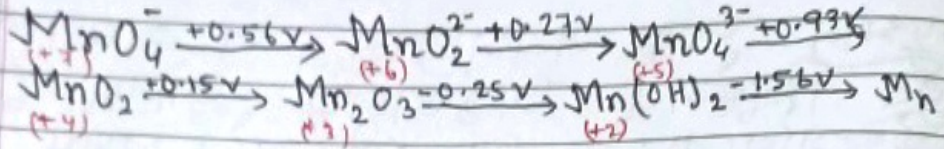 MnO₄⁻ +0.56V→ MnO₂²⁻ +0.27V→ MnO₄³⁻ +0.93V→
(+7) (+6) (+5)
MnO₂ +0.15V→ Mn₂O₃ -0.25V→ Mn(OH)₂ -1.56V→ Mn
(+4) (+3) (+2)